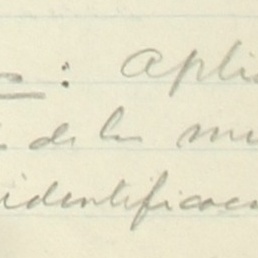 : Apli
de los mu
identificac